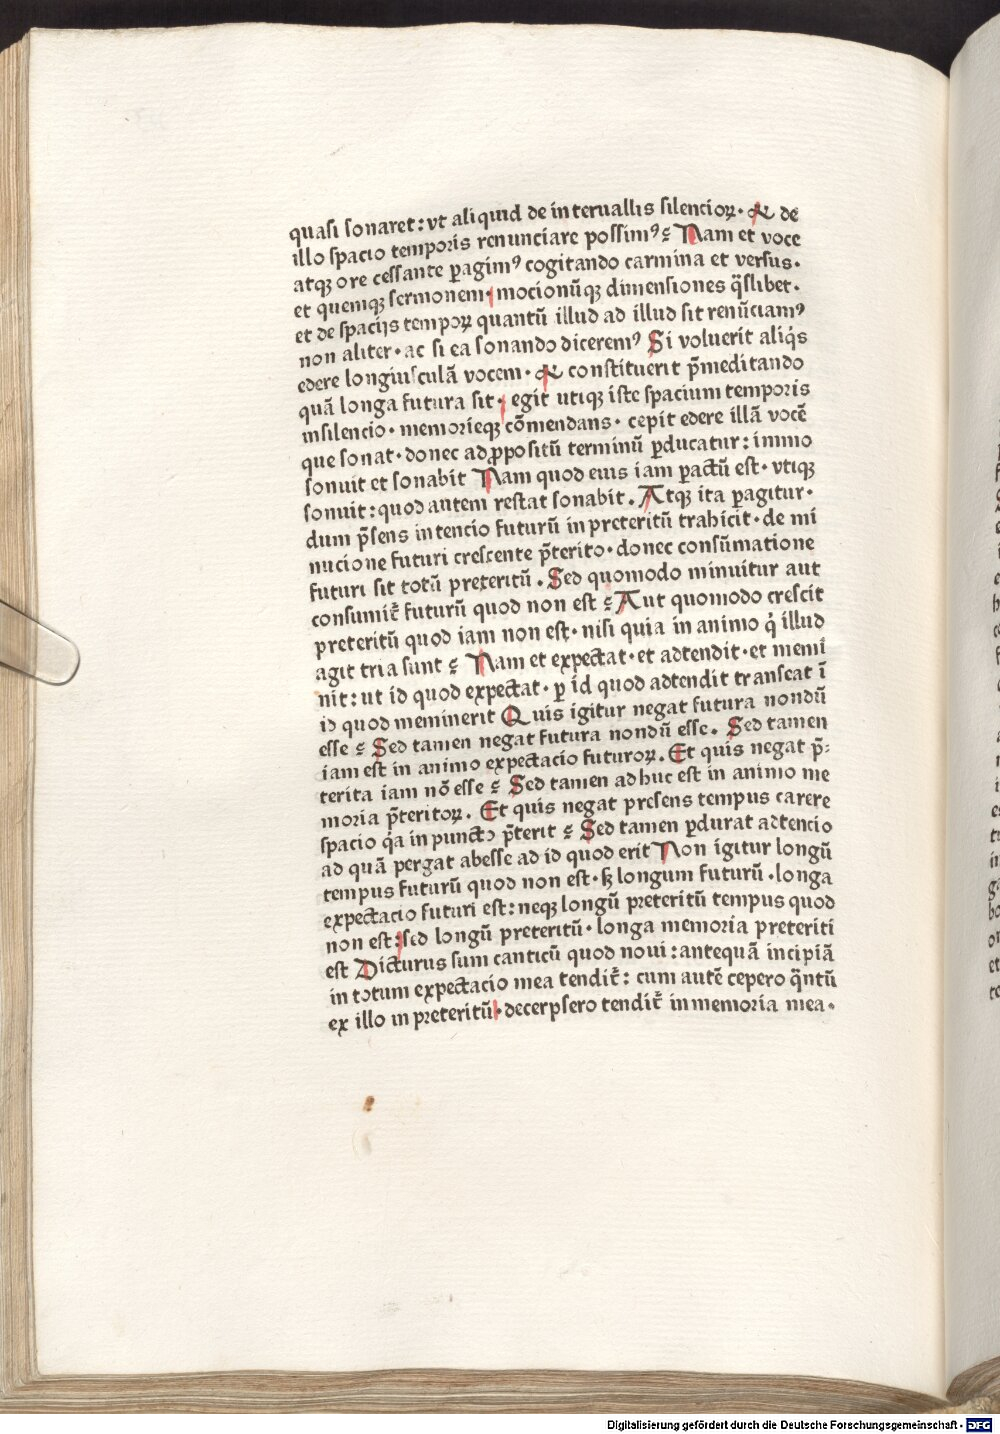 quasi sonaret: vt aliquid de interuallis silencioꝝ· & de
illo spacio temporis renunciare possimꝰ ? Nam et voce
atqꝫ ore cessante ꝑagimꝰ cogitando carmina et versus·
et quemqꝫ sermonem· mocionūqꝫ dimensiones q̄slibet·
et de spacijs tempoꝝ quantū illud ad illud sit renūciamꝰ
non aliter· ac si ea sonando diceremꝰ Si voluerit aliq̇s
edere longiusculā vocem· & constituerit p̄meditando
quā longa futura sit· egit utiqꝫ iste spacium temporis
insilencio· memorieqꝫ cōmendans· cepit edere illā vocē
que sonat· donec ad ꝓpositū terminū ꝑducatur: immo
sonuit et sonabit Nam quod eius iam ꝑactū est· vtiqꝫ
sonuit: quod autem restat sonabit. Atqꝫ ita ꝑagitur·
dum p̄sens intencio futurū in preteritū trahicit· de mi
nucione futuri crescente p̄terito· donec consūmatione
futuri sit totū preteritū. Sed quomodo minuitur aut
consumit᷑ futurū quod non est ? Aut quomodo crescit
preteritū quod iam non est· nisi quia in animo q̇ illud
agit tria sunt ? Nam et expectat· et adtendit· et memi
nit: ut id quod expectat· ꝑ id quod adtendit transeat ī
id quod meminerit Quis igitur negat futura nondū
esse ? Sed tamen negat futura nondū esse. Sed tamen
iam est in animo expectacio futuroꝝ. Et quis negat p̄-
terita iam nō esse ? Sed tamen adhuc est in animo me
moria p̄teritoꝝ. Et quis negat presens tempus carere
spacio q̇a in puncto p̄terit ? Sed tamen ꝑdurat adtencio
ad quā pergat abesse ad id quod erit Non igitur longū
tempus futurū quod non est· sꝫ longum futurū· longa
expectacio futuri est: neqꝫ longū preteritū tempus quod
non est: sed longū preteritū· longa memoria preteriti
est Dicturus sum canticū quod noui: antequā incipiā
in totum expectacio mea tendit᷑: cum autē cepero q̄ntū
ex illo in preteritū· decerpsero tendit᷑ in memoria mea·
Digitalisierung gefördert durch die Deutsche Forschungsgemeinschaft - DFG